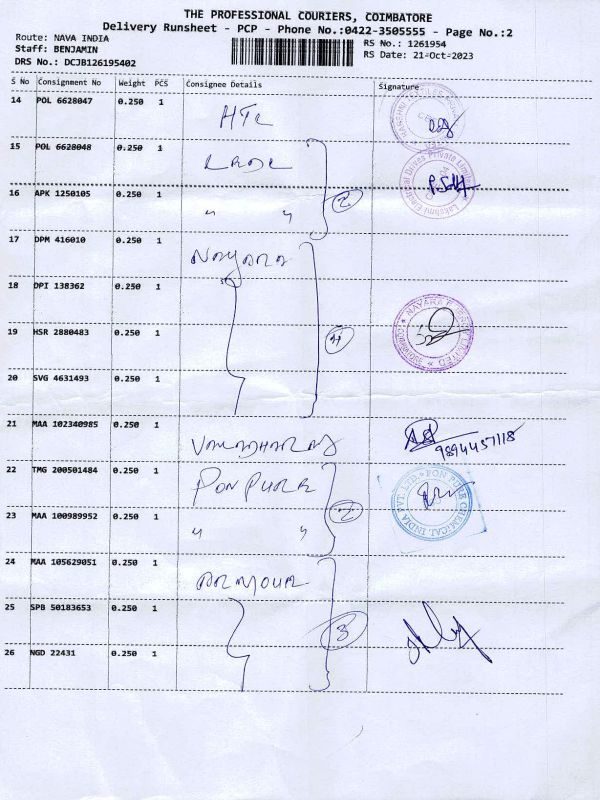 THE PROFESSIONAL COURIERS, COIMBATORE
Delivery Runsheet - PCP - Phone No.:0422-3505555 - Page No.:2
Route: NAVA INDIA
Staff: BENJAMIN
DRS No.: DCJB126195402
RS No.: 1261954
RS Date: 21-Oct-2023
S No Consignment No Weight PCS Consignee Details Signature
14 POL 6628047 0.250 1 HTL
15 POL 6628048 0.250 1
16 APK 1250105 0.250 1 " " 2
Lakshmi Electrical Drives Private Limited
17 DPM 416010 0.250 1 NAYARA
18 DPI 138362 0.250 1
19 HSR 2880483 0.250 1 4
20 SVG 4631493 0.250 1
21 MAA 102340985 0.250 1 VARADHARAJ
9894457118
22 TMG 200501484 0.250 1 PON PURE
PON PURE CHEMICAL INDIA PVT. LTD.
23 MAA 100989952 0.250 1 " " 2
24 MAA 105629051 0.250 1 ARMOUR
25 SPB 50183653 0.250 1 3
26 NGD 22431 0.250 1